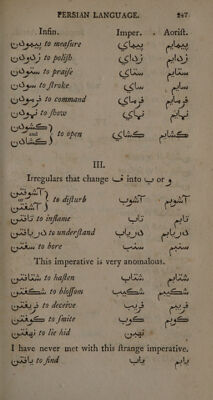 PERSIAN LANGUAGE. 247
Infin. Imper. Aorist.
پیمودن to measure پیماي پیمایم
زدودن to polish زداي زدایم
ستودن to praise ستاي ستایم
سودن to stroke ساي سایم
فرمودن to command فرماي فرمایم
نمودن to show نماي نمایم
کشودن
and
کشادن
to open کشاي کشایم
III.
Irregulars that change ف into ب or و
آشوفتن
or
آشفتن
to disturb آشوب آشوبم
تافتن to inflame تاب تابم
دریافتن to understand دریاب دریابم
سفتن to bore سنب سنبم
This imperative is very anomalous.
شتافتن to hasten شتاب شتابم
شکفتن to blossom شکیب
فریفتن to deceive فریب فریبم
کوفتن to smite کوب کوبم
نهفتن to lie hid نهبن
I have never met with this strange imperative.
یافتن to find یاب یابم